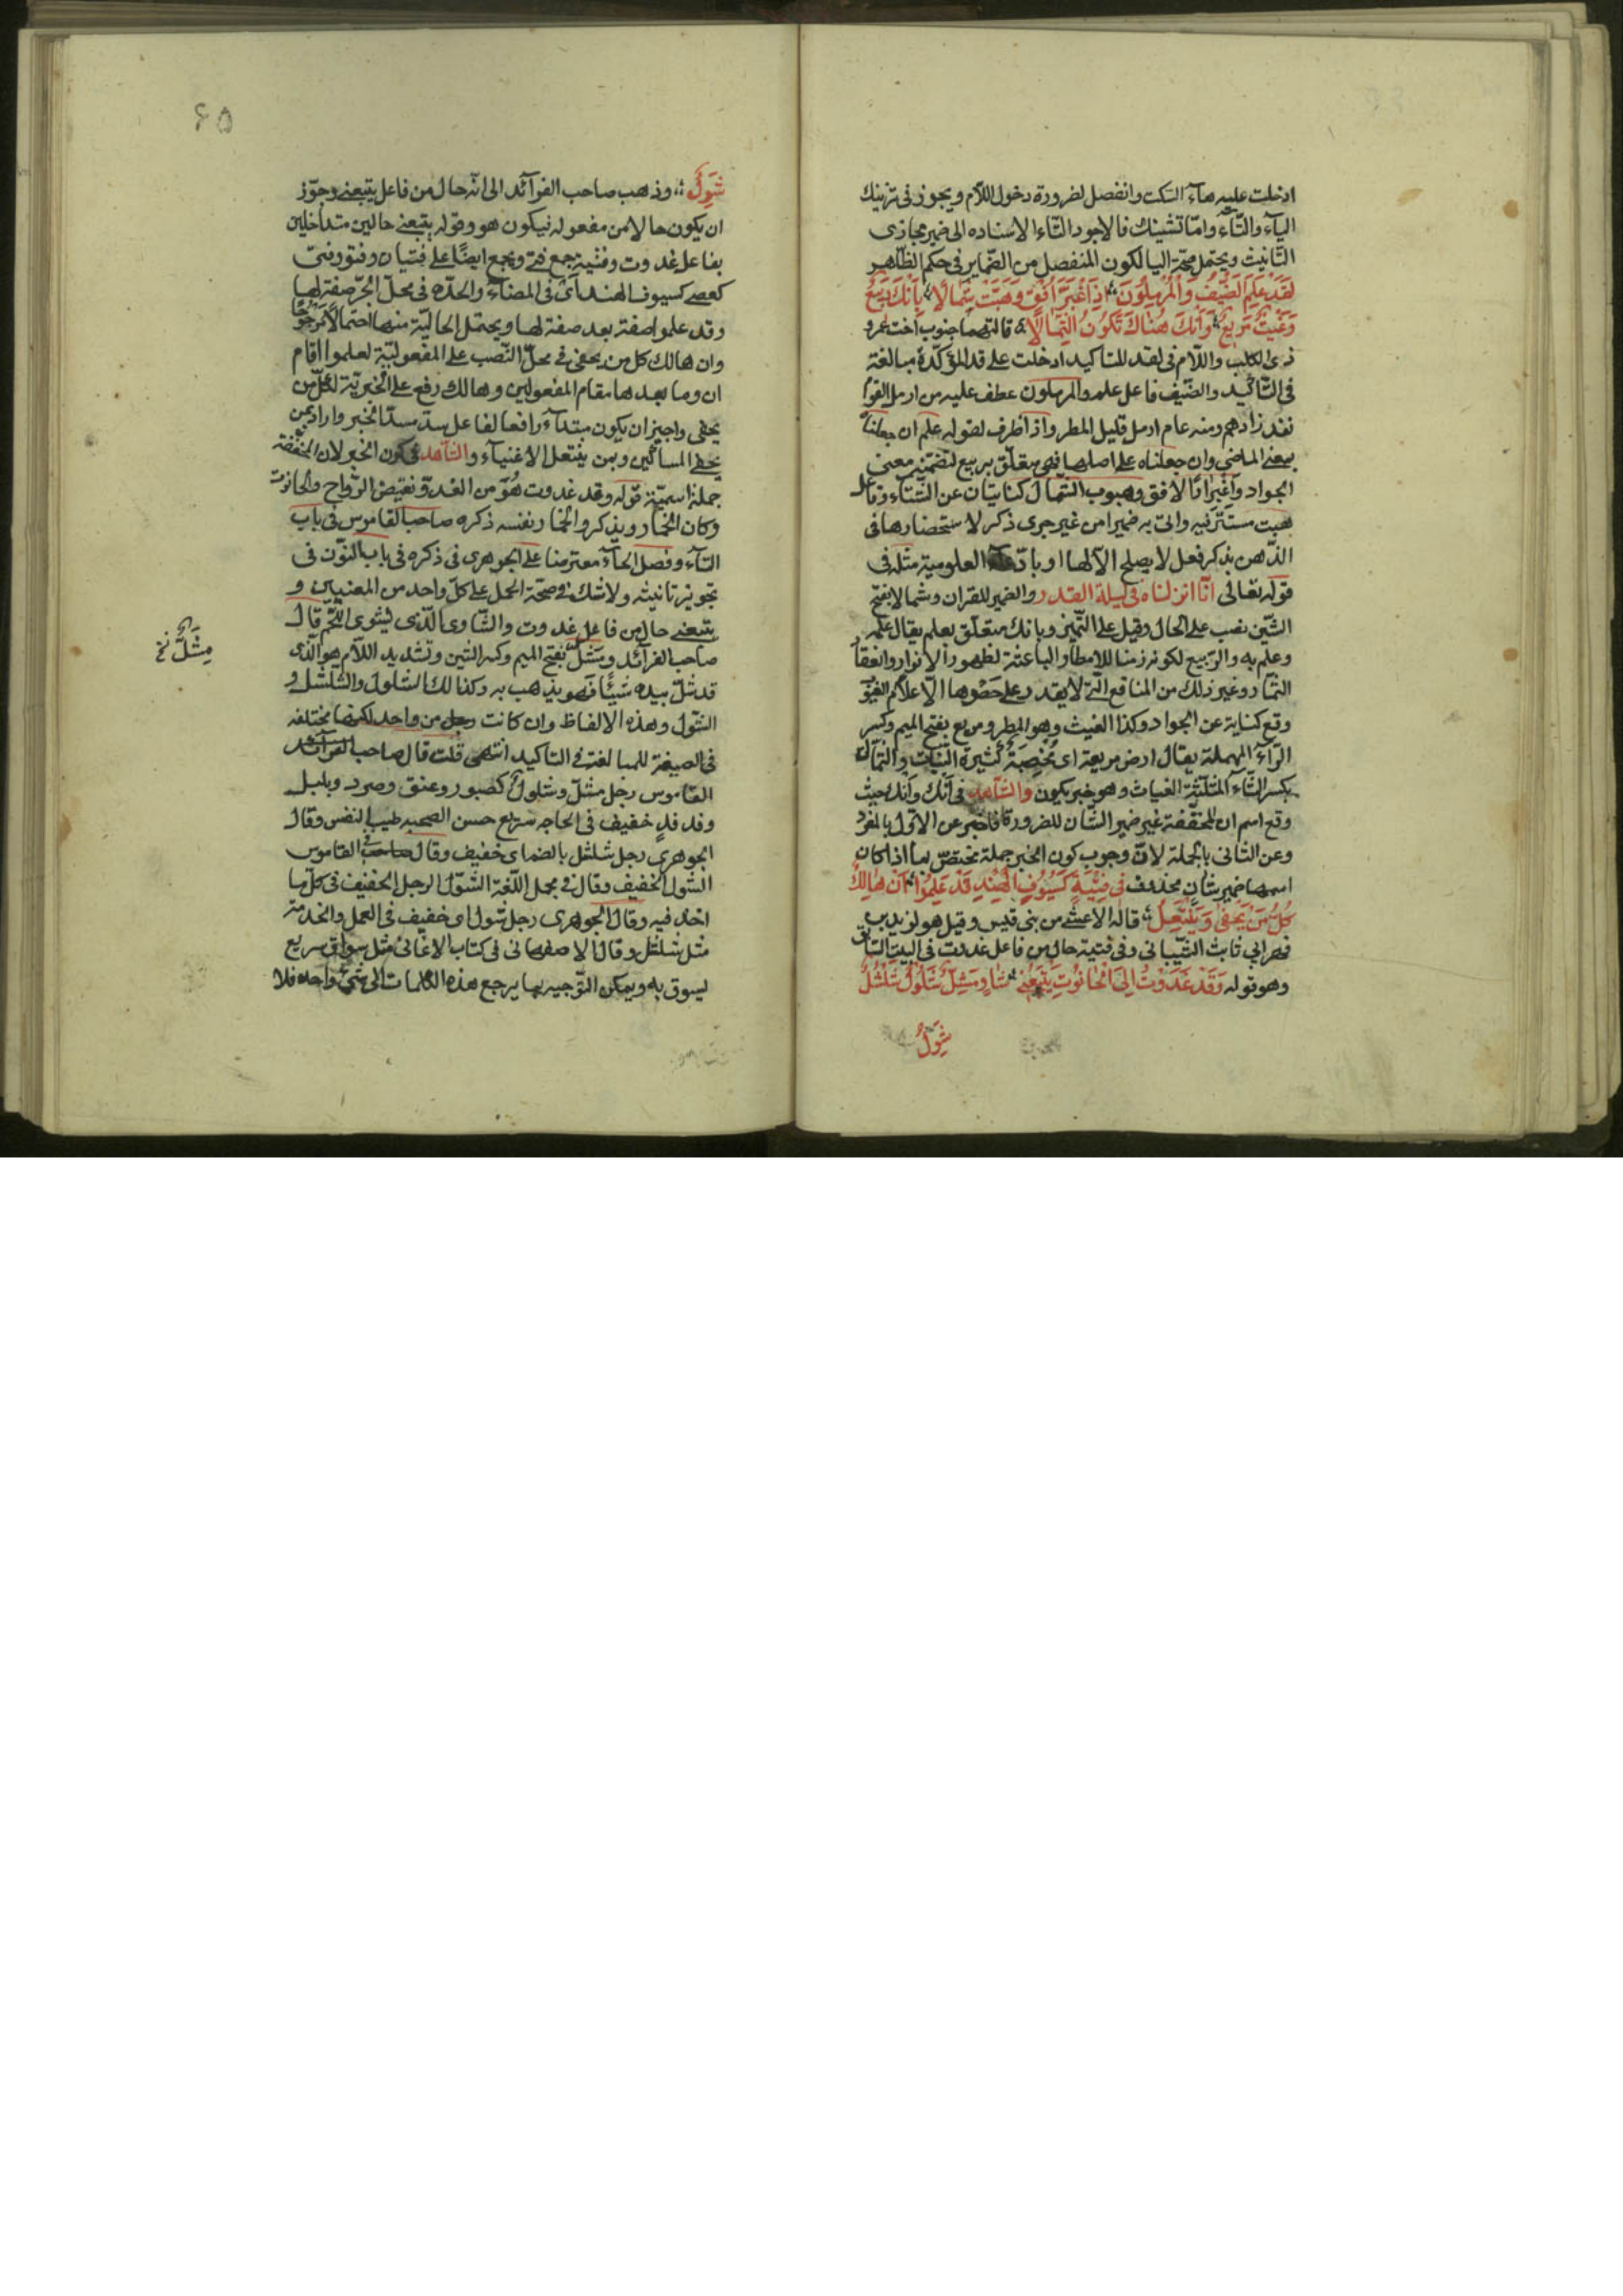 ادخلت عليه هآء السكت وانفصل لضرورة دخول اللام ويجوز فى تزنيك
اليآء والتآء وامّا تشينك فالاجود التاء الاسناده الى ضمير مجازى
التانيث ويحتمل صحة اليا لكون المنفصل من الضماير فى حكم الظاهر
لَقَدْ عَلِمَ الضَّيْفُ وَالْمُرْمِلُونَ اِذَا اغْبَرَّ اُفُقٌ وَهَبَّتْ شَمَالًا بِاَنْكَ رَبِيعٌ
وَغَيْثٌ مَرِيعٌ وَاَنْكَ هُنَاكَ تَكُونُ الثِّمَالَا قالتهما جنوب اخت عمرو
ذى الكلب واللام فى لقد للتاكيد ادخلت على قد المؤكّدة مبالغة
فى التاكيد والضّيف فاعل علم والمرملون عطف عليه من ارمل القوم
نفد زادهم ومنه عام ارمل قليل المطر واذا ظرف لقوله علم ان جعلناه
بمعنى الماضى وان جعلناه على اصلها فهى متعلق بربيع لتضمّنه معنى
الجواد واغبرار الافق وهبوب الشمال كنايتان عن الشتاء وفاعل
هبت مستتر فيه واتى به ضميرا من غير جرى ذكر لاستحضارها فى
الذهن بذكر فعل لا يصلح الا لها او بادّعاء العلومية مثله فى
قوله تعالى انّا انزلناه فى ليلة القدر والضمير للقران وشمالا بفتح
الشين نصب على الحال وقيل على التميز وبانك متعلق بعلم يقال علمه
وعلم به والربيع لكونه زمنا للامطار الباعثة لظهور الانوار وانعقاد
الثمار وغير ذلك من المنافع التى لا يقدر على حصوها الا علام الغيوب
وقع كناية عن الجواد وكذا الغيث وهو المطر ومريع بفتح الميم وكسر
الرآء المهملة يقال ارض مريعة اى مُخْصِبَةٌ كثيرة النبات والثمال
بكسر الثاء المثلثة الغياث وهو خبر يكون والشاهد فى اَنْك واَنْك حيث
وقع اسم ان المخففة غير ضمير الشان للضرورة فاخبر عن الاول بالمفرد
وعن الثانى بالجملة لان وجوب كون الخبر جملة مختصّ بما اذا كان
اسمها ضمير شان محذوف فِى فِتْيَةٍ كَسُيُوفِ الْهِنْدِ قَدْ عَلِمُوا اَنْ هَالِكٌ
كُلُّ مَنْ يَحْفَى وَيَنْتَعِلُ قاله الاعشى من بنى قيس وقيل هو لزيد بن
فهر ابى ثابت الشيبانى وفى فتية حال من فاعل غدوت فى البيت السابق
وهو قوله وَقَدْ غَدَوْتُ اِلَى الْحَانُوتِ يَتْبَعُنِى شَاوٍ مِشَلٌّ شَلُولٌ شُلْشُلٌ
شَوِلُ
۶۵
شَوِلُ وذهب صاحب الفرآئد الى انّه حال من فاعل يتبعنى وجوّز
ان يكون حالا من مفعوله فيكون هو وقوله يتبعنى حالين متداخلين
بفاعل غدوت وفتية جمع فتى ويجمع ايضًا على فتيان وفتوّ وفتىّ
كعصى كسيوف الهند اى فى المضاء والحدّة فى محلّ الجرّ صفة لها
وقد علموا صفة بعد صفة لها ويحتمل الحاليّة منها احتمالا مرجوحًا
وان هالك كل من يحفى فى محلّ النّصب على المفعوليّة لعلموا اقام
ان وما بعدها مقام المفعولين وهالك رفع على الخبريّة لكلّ من
يحفى واجيز ان يكون مبتدآء رافعا لفاعل سدّ مسدّ الخبر واراد بمن
يحفى المساكين وبمن ينتعل الاغنيآء والشاهد فى كون الخبر لان المخففة
جملة اسميّة قوله وقد غدوت هُوَ من الغدوّ نقيض الرّواح والحانوت
وكان الخمار ويذكر والخمار نفسه ذكره صاحب القاموس فى باب
التآء وفصل الحآء معترضا على الجوهرى فى ذكره فى باب النون فى
تجويز تانيثه ولا شك فى صحّة الحمل على كلّ واحد من المعنيين و
يتبعنى حال من فاعل غدوت والشاوى الّذى يشوى اللحم قال
صاحب الفرآئد ومَشِلّ بفتح الميم وكسر الشين وتشديد اللام هو الّذى
قد شلّ بيده شيئًا فهو يذهب به وكذا لك الشلول والشلشل و
الشول وهذه الالفاظ وان كانت من واحد لكنها مختلفة
فى الصيغة للمبالغة فى التاكيد انتهى قلت قال صاحب
القاموس رجل مشلّ وشلول كصبور وعنق وصرد وبلبل
وفدفدٍ خفيف فى الحاجه سريع حسن الصحبه طيب النفس وقال
الجوهرى رجل شلشل بالضم اى خفيف وقال فى القاموس
الشول الخفيف وقال فى مجمل اللّغة الشول الرجل الخفيف فى كلّ ما
اخذ فيه وقال الجوهرى رجل شول اى خفيف فى العمل والخدمة
مثل شلشل وقال الاصفهانى فى كتاب الاغانى مشل سواق سريع
يسوق به ويمكن التوجيه بها يرجع هذه الكلمات الى شئ واحد فلا
مِشَلٌّ نخ